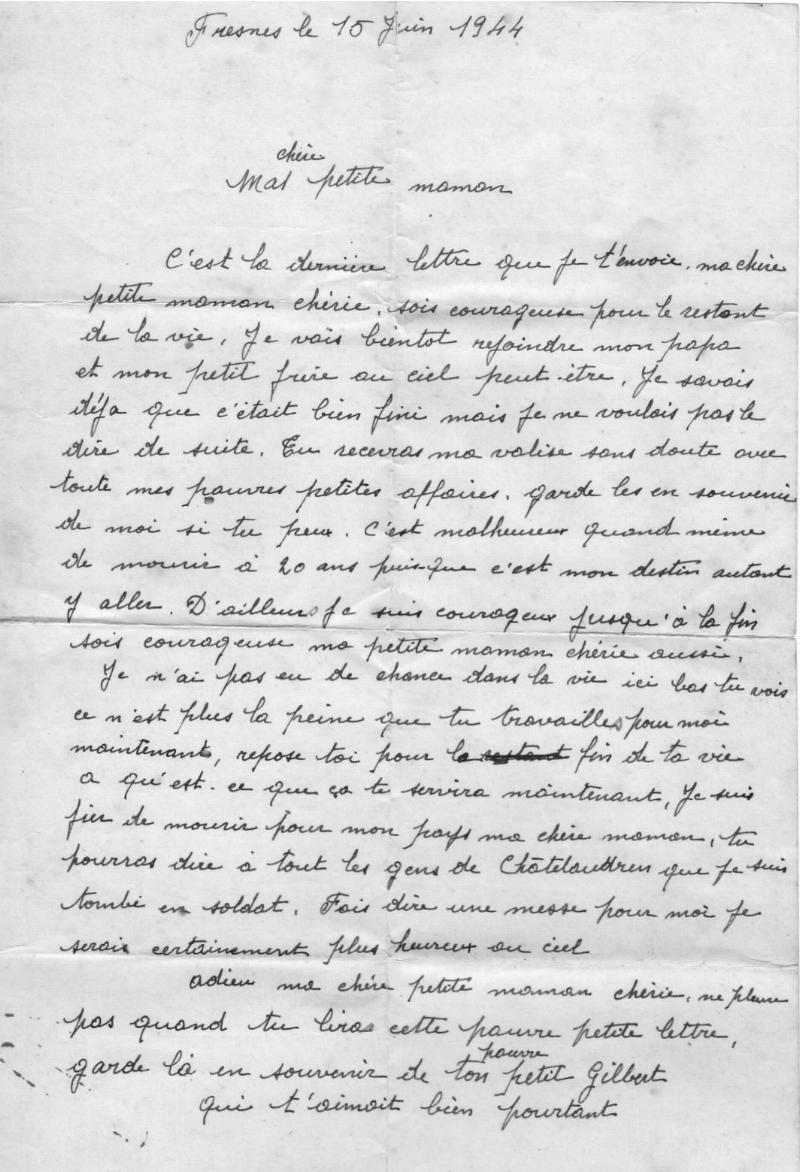 Fresnes le 15 Juin 1944
chère
Mal petite maman
C'est la dernière lettre que je t'envoie. ma chère
petite maman chérie, sois courageuse pour le restant
de la vie, Je vais bientot rejoindre mon papa
et mon petit frère au ciel peut-être, Je savais
déja que c'était bien fini mais je ne voulais pas le
dire de suite. Tu recevras ma valise sans doute avec
toute mes pauvres petites affaires. garde les en souvenir
de moi si tu peux. C'est malheureux quand même
de mourir à 20 ans puis-que c'est mon destin autant
y aller. D'ailleurs je suis courageux jusqu'à la fin
sois courageuse ma petite maman chérie aussi,
Je n'ai pas eu de chance dans la vie ici bas tu vois
ce n'est plus la peine que tu travailles pour moi
maintenant, repose toi pour la restant fin de ta vie
a qu'est-ce que ça te servira maintenant, Je suis
fier de mourir pour mon pays ma chère maman, tu
pourras dire à tout les gens de Châtelaudren que je suis
tombé en soldat. Fais dire une messe pour moi je
serais certainement plus heureux au ciel
adieu ma chère petite maman chérie, ne pleure
pas quand tu liras cette pauvre petite lettre,
garde là en souvenir de ton pauvre petit Gilbert
qui t'aimait bien pourtant